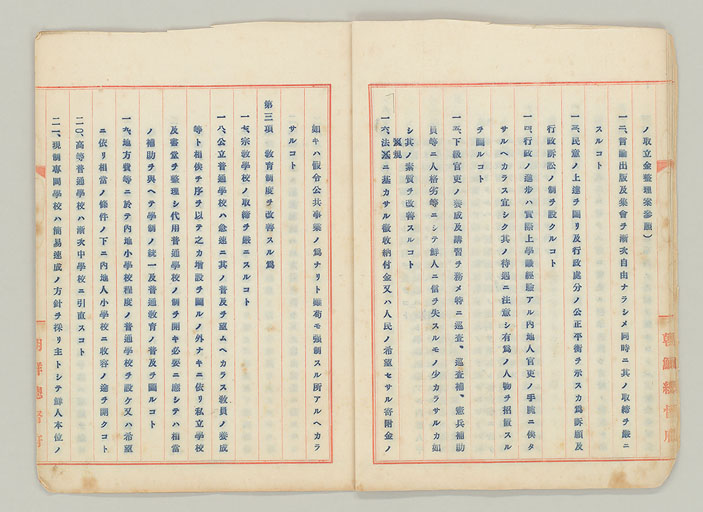 ノ取立金整理案參照)
一二、言論出版及集會ヲ漸次自由ナラシメ同時ニ其ノ取締ヲ嚴ニ
スルコト
一三、民意ノ上達ヲ圖リ及行政處分ノ公正平衡ヲ承スカ爲訴願及
行政訴訟ノ制ヲ設クルコト
一四、行政ノ進步ハ實際上學識經驗アル內地人官吏ノ手腕ニ俟タ
サルヘカラス宜シク其ノ待遇ニ注意シ有爲ノ人物ヲ招致スル
ヲ圖ルコト
一五、下級官吏ノ養成及講習ヲ務メ特ニ巡査、巡査補、憲兵補助
員等ニ人格劣等ニシテ鮮人ニ信ヲ失スルモノ少カラサルカ如
シ其ノ素質ヲ改善スルコト
法規
一六、法基ニ基カサル徵收納付金又ハ人民ノ希望セサル寄附金ノ
朝鮮總督府
如キハ假令公共事業ノ爲ナリト雖苟モ强制スル所アルヘカラ
サルコト
第三項 敎育制度ヲ改善スル爲
一七、宗敎學校ノ取締ヲ嚴ニスルコト
一八、公立普通學校ハ急速ニ其ノ普及ヲ望ムヘカラス敎員ノ養成
等ト相俟チ序ヲ以テ之カ增設ヲ圖ルノ外ナキニ依リ私立學校
及書堂ヲ整理シ代用普通學校ノ制ヲ開キ必要ニ應シテハ相當
ノ補助ヲ與ヘテ學制ノ統一及普通敎育ノ普及ヲ圖ルコト
一九、地方費等ニ於テ內地小學校程度ノ普通學校ヲ設ケ又ハ希望
ニ依リ相當ノ條件ノ下ニ內地人小學校ニ收容ノ途ヲ開クコト
二〇、高等普通學校ハ漸次中學校ニ引直スコト
二一、現制專門學校ハ簡易速成ノ方針ヲ採リ主トシテ鮮人本位ノ
朝鮮總督府